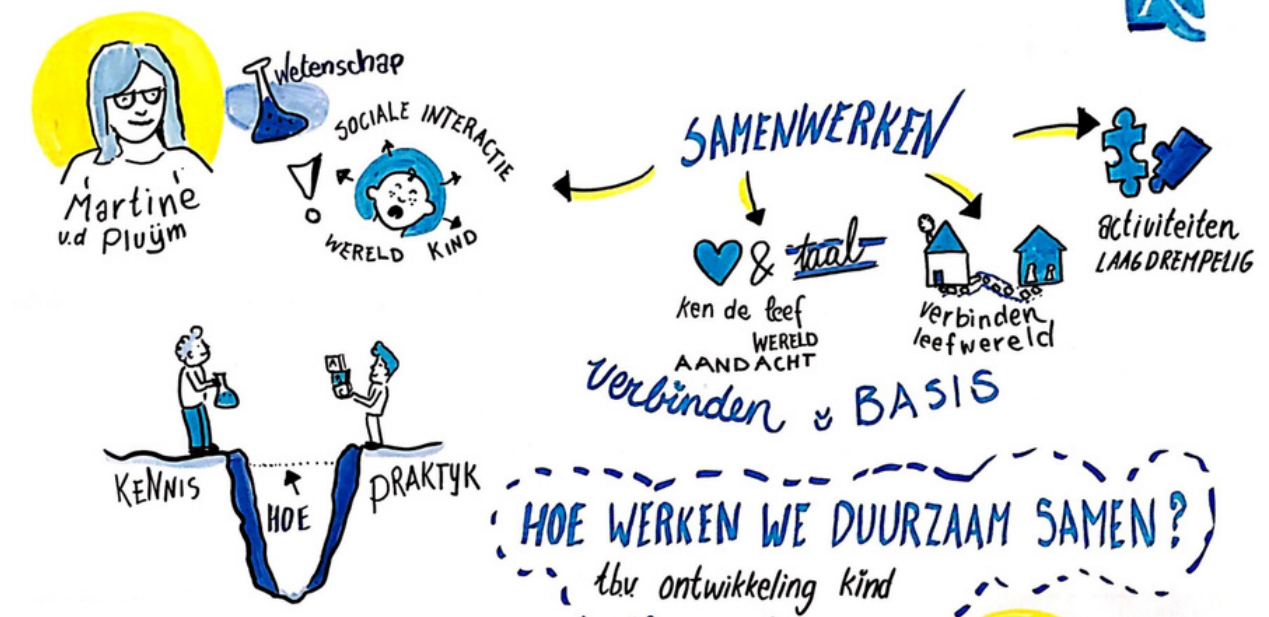 Wetenschap
SOCIALE INTERACTIE
!
WERELD KIND
Martine
v.d Pluÿm
SAMENWERKEN
& taal
ken de leef
WERELD
AANDACHT
verbinden
leefwereld
activiteiten
LAAGDREMPELIG
verbinden BASIS
KENNIS
HOE
PRAKTYK
HOE WERKEN WE DUURZAAM SAMEN?
tbv. ontwikkeling kind